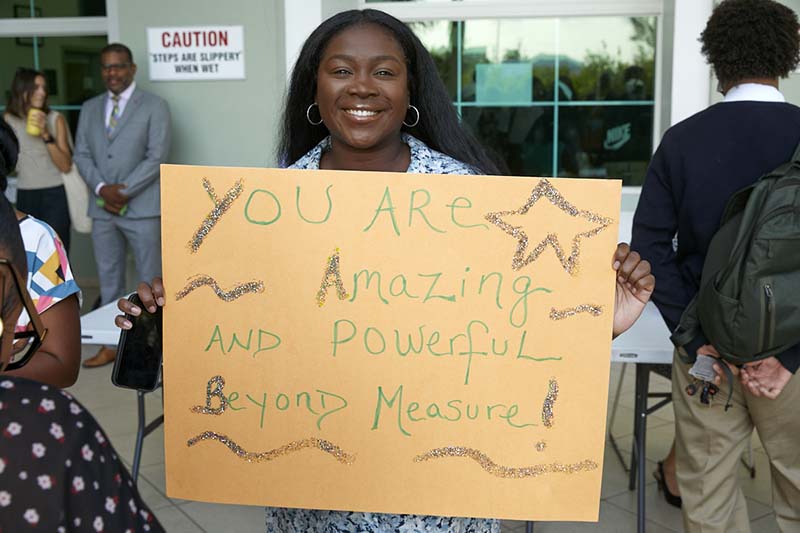 CAUTION
STEPS ARE SLIPPERY
WHEN WET
NIKE
You Are
Amazing
And Powerful
Beyond Measure!